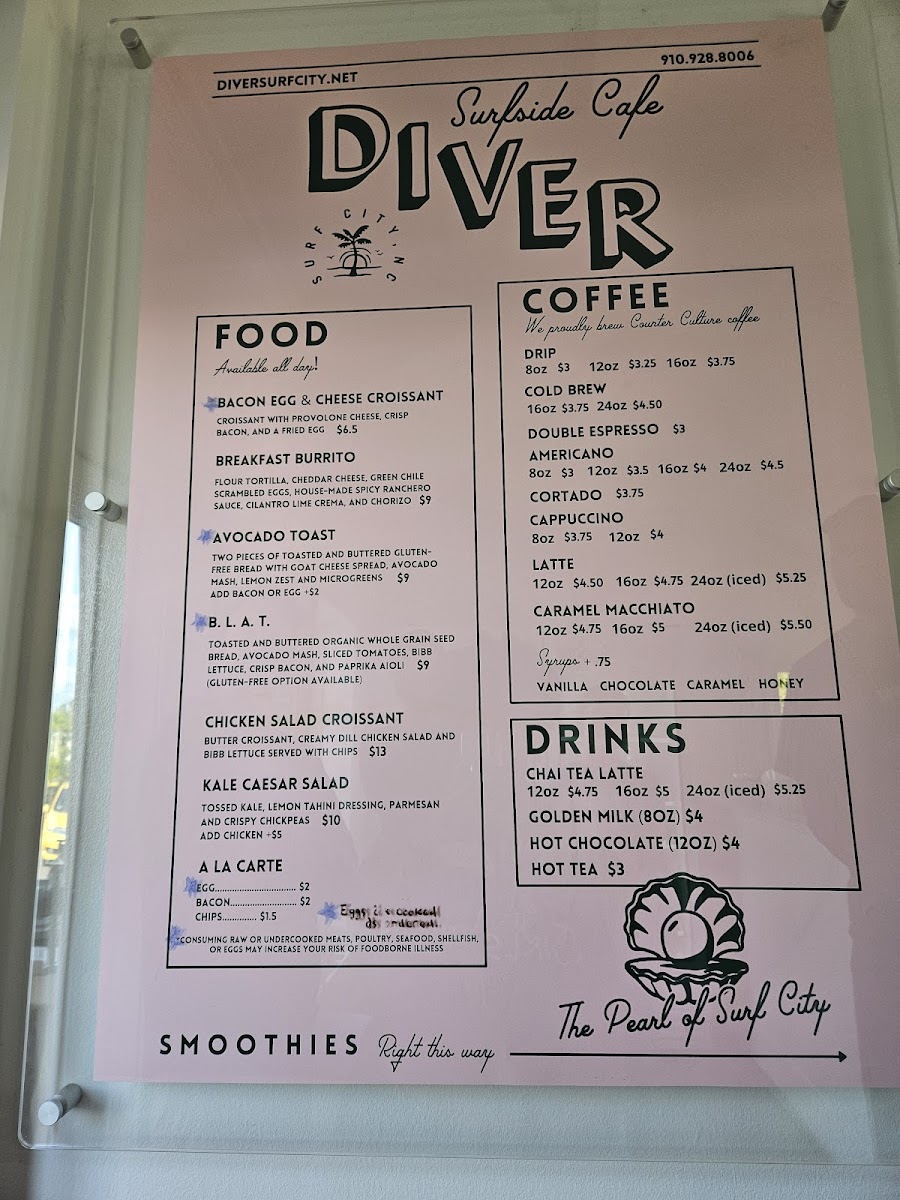 DIVERSURFCITY.NET
910.928.8006
Surfside Cafe
DIVER
SURF CITY, NC
FOOD
Available all day!
BACON EGG & CHEESE CROISSANT
CROISSANT WITH PROVOLONE CHEESE, CRISP
BACON, AND A FRIED EGG $6.5
BREAKFAST BURRITO
FLOUR TORTILLA, CHEDDAR CHEESE, GREEN CHILE
SCRAMBLED EGGS, HOUSE-MADE SPICY RANCHERO
SAUCE, CILANTRO LIME CREMA, AND CHORIZO $9
AVOCADO TOAST
TWO PIECES OF TOASTED AND BUTTERED GLUTEN-
FREE BREAD WITH GOAT CHEESE SPREAD, AVOCADO
MASH, LEMON ZEST AND MICROGREENS $9
ADD BACON OR EGG +$2
B. L. A. T.
TOASTED AND BUTTERED ORGANIC WHOLE GRAIN SEED
BREAD, AVOCADO MASH, SLICED TOMATOES, BIBB
LETTUCE, CRISP BACON, AND PAPRIKA AIOLI $9
(GLUTEN-FREE OPTION AVAILABLE)
CHICKEN SALAD CROISSANT
BUTTER CROISSANT, CREAMY DILL CHICKEN SALAD AND
BIBB LETTUCE SERVED WITH CHIPS $13
KALE CAESAR SALAD
TOSSED KALE, LEMON TAHINI DRESSING, PARMESAN
AND CRISPY CHICKPEAS $10
ADD CHICKEN +$5
A LA CARTE
EGG................................ $2
BACON.......................... $2
CHIPS............. $1.5
Eggs cooked
as ordered.
*CONSUMING RAW OR UNDERCOOKED MEATS, POULTRY, SEAFOOD, SHELLFISH,
OR EGGS MAY INCREASE YOUR RISK OF FOODBORNE ILLNESS
COFFEE
We proudly brew Counter Culture coffee
DRIP
8oz $3 12oz $3.25 16oz $3.75
COLD BREW
16oz $3.75 24oz $4.50
DOUBLE ESPRESSO $3
AMERICANO
8oz $3 12oz $3.5 16oz $4 24oz $4.5
CORTADO $3.75
CAPPUCCINO
8oz $3.75 12oz $4
LATTE
12oz $4.50 16oz $4.75 24oz (iced) $5.25
CARAMEL MACCHIATO
12oz $4.75 16oz $5 24oz (iced) $5.50
Syrups + .75
VANILLA CHOCOLATE CARAMEL HONEY
DRINKS
CHAI TEA LATTE
12oz $4.75 16oz $5 24oz (iced) $5.25
GOLDEN MILK (8OZ) $4
HOT CHOCOLATE (12OZ) $4
HOT TEA $3
The Pearl of Surf City
SMOOTHIES Right this way